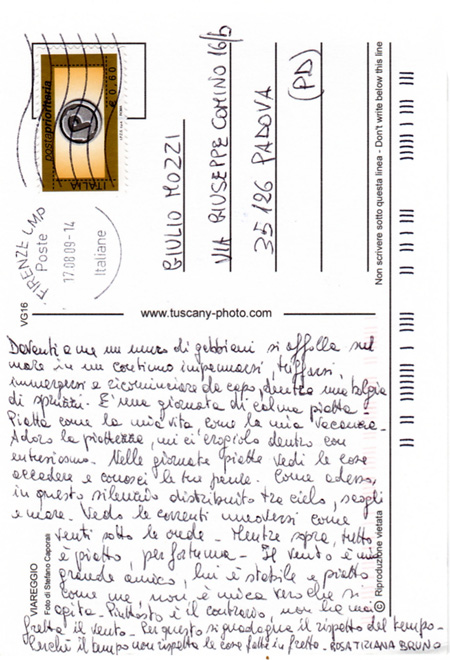 posteprioritaria
€ 0,60
ITALIA
FIRENZE C.M.P.
Poste
17.08.09-14
Italiane
GIULIO MOZZI
VIA GIUSEPPE COMINO 16/b
35126 PADOVA
(PD)
Non scrivere sotto questa linea - Don't write below this line
VG16
www.tuscany-photo.com
Davanti a me un muro di gabbiani si affolla sul
mare in un continuo impennarsi, tuffarsi,
immergersi e ricominciare da capo, dentro una
di spruzzi. E' una giornata di calma piatta.
Piatta come la mia vita come la mia vacanza.
Adoro la piattezza, mi ci crogiolo dentro con
entusiasmo. Nelle giornate piatte vedi le cose
accadere e conosci le tue paure. Come adesso,
in questo silenzio distribuito tra cielo, scogli
e mare. Vedo le correnti muoversi come
venti sotto le onde. Mentre sopra, tutto
è piatto, per fortuna. Il vento è mio
grande amico, lui è stabile e piatto
come me, non è mica vero che si
agita. Piuttosto è il contrario, non ha mai
fretta il vento. Per questo si guadagna il rispetto del tempo.
Perché il tempo non rispetta le cose fatte in fretta. ROSA TIZIANA BRUNO
VIAREGGIO
Foto di Stefano Caporali
© Riproduzione vietata